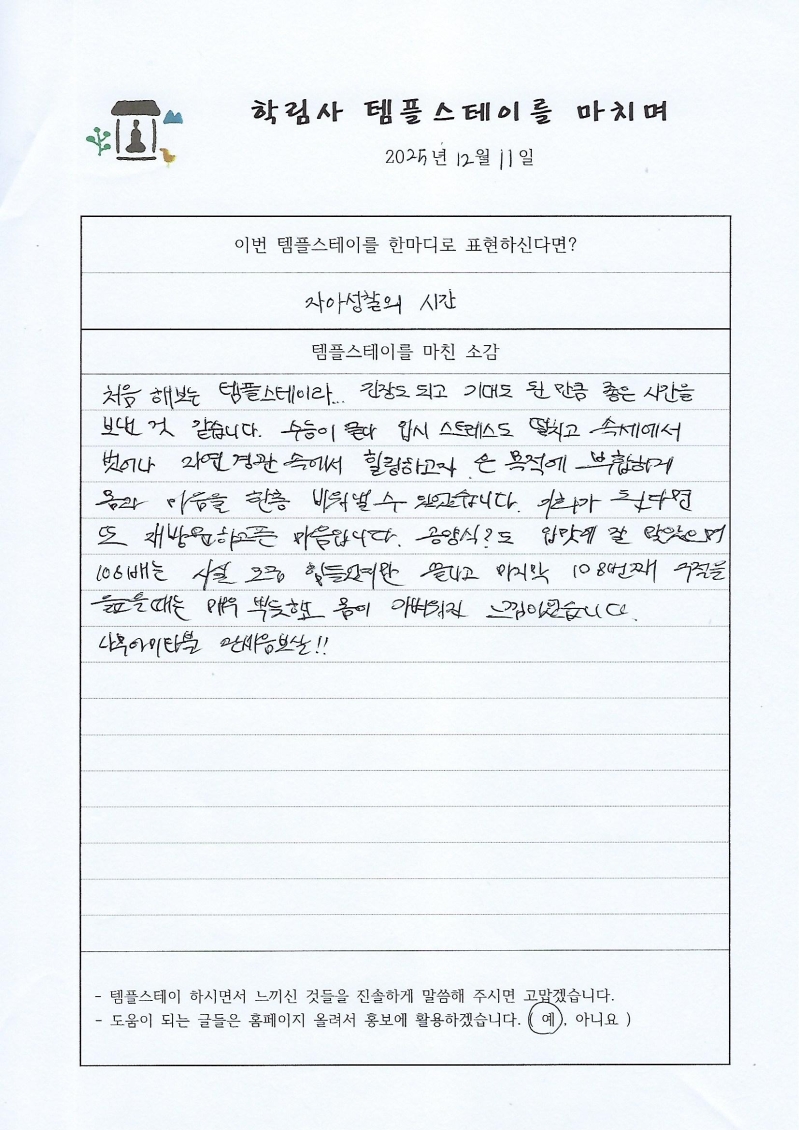 학림사 템플스테이를 마치며
2025년 12월 11일
이번 템플스테이를 한마디로 표현하신다면?
자아성찰의 시간
템플스테이를 마친 소감
처음 해보는 템플스테이라... 긴장도 되고 기대도 된 만큼 좋은 시간을
보낸 것 같습니다. 수능이 끝나 입시 스트레스도 떨치고 속세에서
벗어나 자연 경관 속에서 힐링하고자 온 목적에 부합하게
몸과 마음을 한층 비워낼 수 있었습니다. 기회가 된다면
또 재방문하고픈 마음입니다. 공양식?도 입맛에 잘 맞았으며
108배는 사실 조금 힘들었지만 끝나고 마지막 108번째
때는 매우 뿌듯하고 몸이 가벼워진 느낌이었습니다.
나무아미타불 관세음보살!!
- 템플스테이 하시면서 느끼신 것들을 진솔하게 말씀해 주시면 고맙겠습니다.
- 도움이 되는 글들은 홈페이지 올려서 홍보에 활용하겠습니다. ( 예, 아니요 )